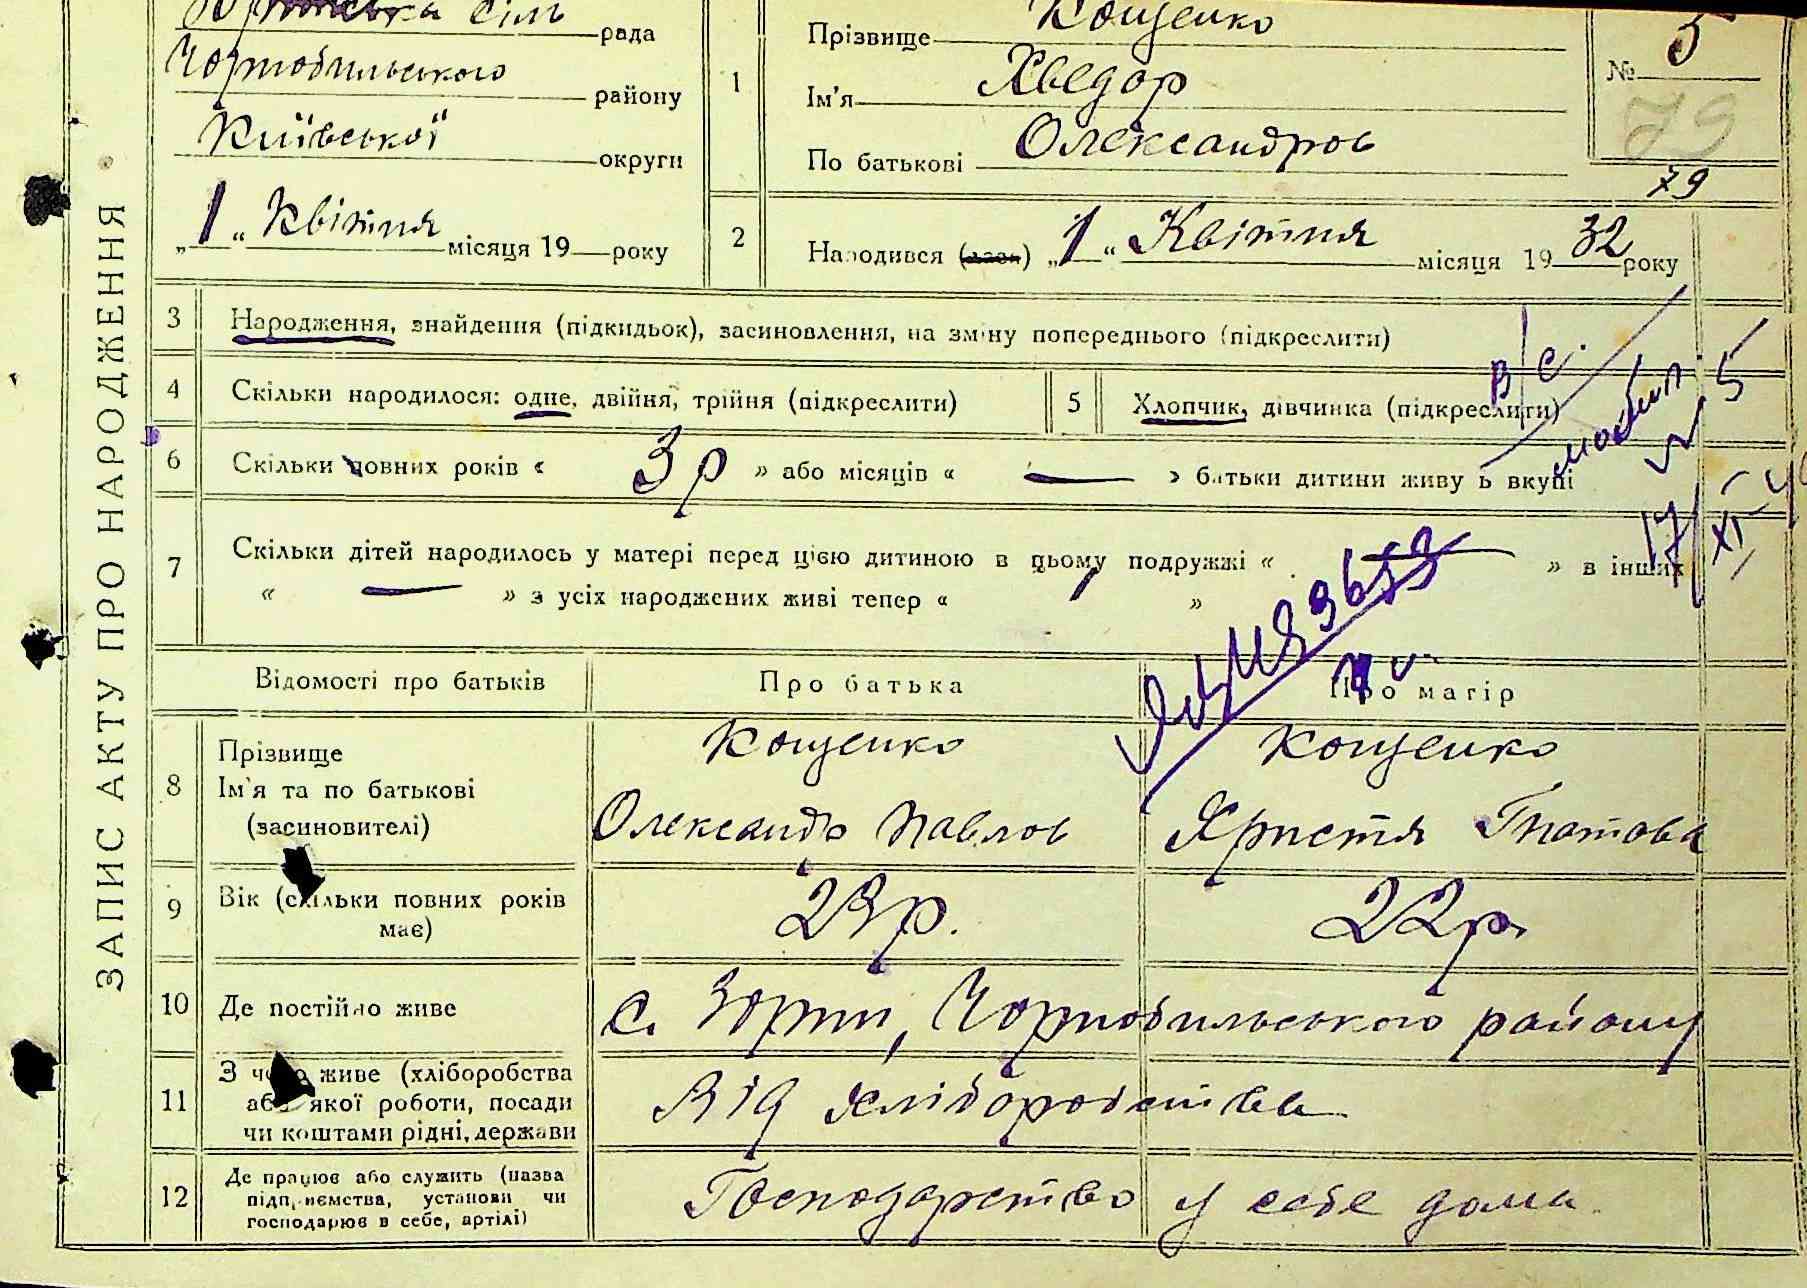 сіль рада
Чорнобильського району
Київської округи
„1“ Квітня місяця 19 року
1
Прізвище Кощенко
Ім'я Хведор
По батькові Олександров
№ 5
79
79
2
Народився „1“ Квітня місяця 1932 року
ЗАПИС АКТУ ПРО НАРОДЖЕННЯ
3 Народження, знайдення (підкидьок), засиновлення, на зміну попереднього (підкреслити)
4 Скільки народилося: одне, двійня, трійня (підкреслити)
5 Хлопчик, дівчинка (підкреслити)
в/с.
6 Скільки повних років « 3 р » або місяців « — » батьки дитини живуть вкупі
7 Скільки дітей народилось у матері перед цією дитиною в цьому подружжі « — » в інших
« — » з усіх народжених живі тепер « »
17/XI
Відомості про батьків
Про батька
Про матір
8 Прізвище
Ім'я та по батькові
(засиновителі)
Кощенко
Олександр Павлов
Кощенко
Христя Гнатова
9 Вік (скільки повних років
має)
23 р.
22 р.
10 Де постійно живе
с. Зорти, Чорнобильського району
11 З чого живе (хліборобства
або якої роботи, посади
чи коштами рідні, держави
Від хліборобства
12 Де працює або служить (назва
підприємства, установи чи
господарює в себе, артілі)
Господарство у себе дома